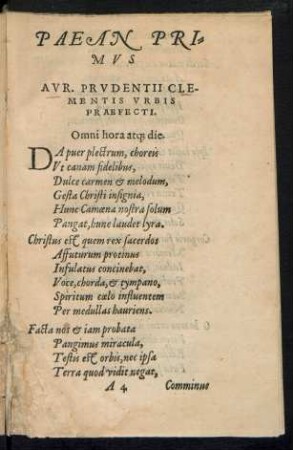 PAEAN PRI-
MVS
AVR. PRVDENTII CLE-
MENTIS VRBIS
PRAEFECTI.
Omni hora atq; die.
DA puer plectrum, choreis
Vt canam fidelibus,
Dulce carmen & melodum,
Gesta Christi insignia,
Hunc Camœna nostra solum
Pangat, hunc laudet lyra.
Christus est quem rex sacerdos
Affuturum protinus
Infulatus concinebat,
Voce, chorda, & tympano,
Spiritum cælo influentem
Per medullas hauriens.
Facta nos & iam probata
Pangimus miracula,
Testis est orbis, nec ipsa
Terra quod vidit negat,
A 4 Comminus